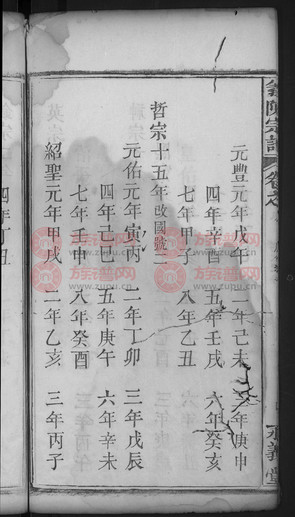 元豐元年戊午 年己未 三年庚申
四年辛酉 五年壬戌 六年癸亥
七年甲子 八年乙丑
哲宗十五年改國號二
元佑元年寅丙 二年丁卯 三年戊辰
四年己巳 五年庚午 六年辛未
七年壬申 八年癸酉
紹聖元年甲戌 二年乙亥 三年丙子
族譜網
www.zupu.cn